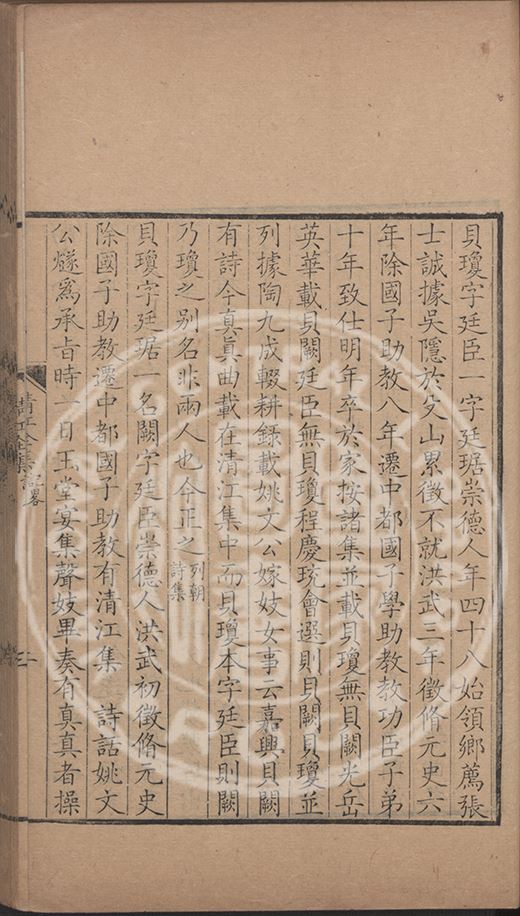 貝瓊字廷臣一字廷琚崇德人年四十八始領鄉薦張
士誠據吳隱於殳山累徵不就洪武三年徵脩元史六
年除國子助教八年遷中都國子學助教教功臣子弟
十年致仕明年卒於家按諸集並載貝瓊無貝闕光岳
英華載貝闕廷臣無貝瓊程慶琓會選則貝闕貝瓊並
列據陶九成輟耕錄載姚文公嫁妓女事云嘉興貝闕
有詩今真真曲載在清江集中而貝瓊本字廷臣則闕
乃瓊之别名非兩人也今正之列朝詩集
貝瓊字廷琚一名闕字廷臣崇德人洪武初徵脩元史
除國子助教遷中都國子助教有清江集 詩話姚文
公燧爲承旨時一日玉堂宴集聲妓畢奏有真真者操
清江全集